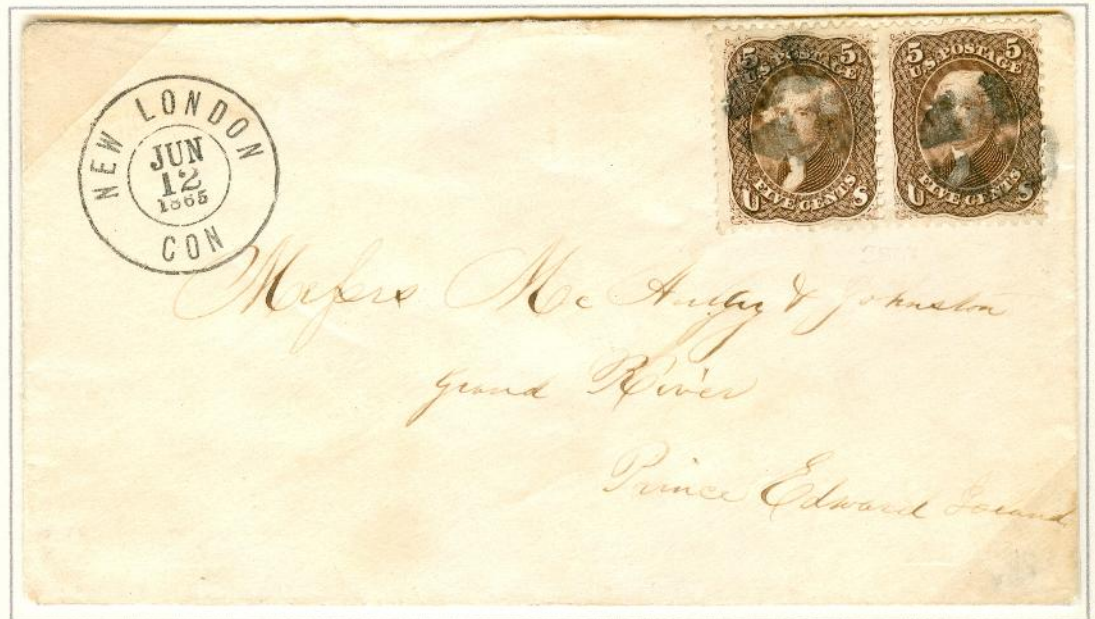 NEW LONDON
JUN
12
1865
CON
5 U.S. POSTAGE 5
FIVE CENTS
U S
5 U.S. POSTAGE 5
FIVE CENTS
U S
Messrs Mc & Johnston
Grand River
Prince Edward Island